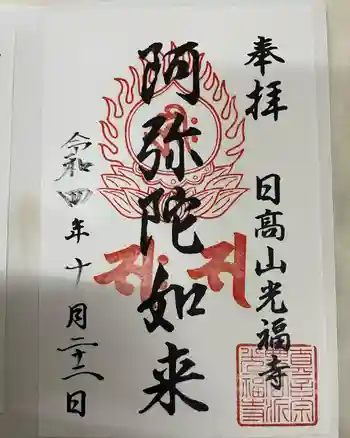 奉拝
日髙山光福寺
阿弥陀如来
令和四年十月二十二日